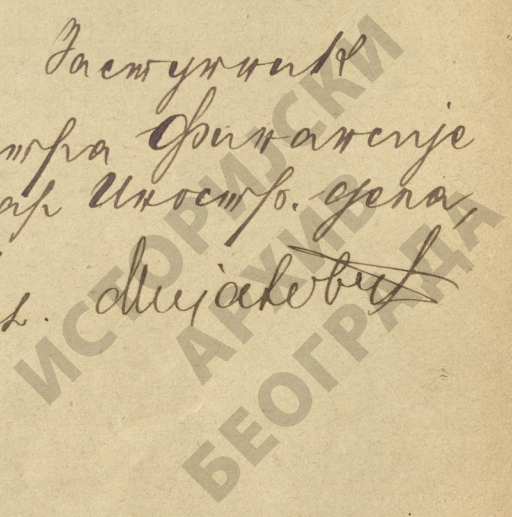 Заступник
тра Финансије
ар Иностр. дела,
Мијатовић
ИСТОРИЈСКИ
АРХИВ
БЕОГРАДА